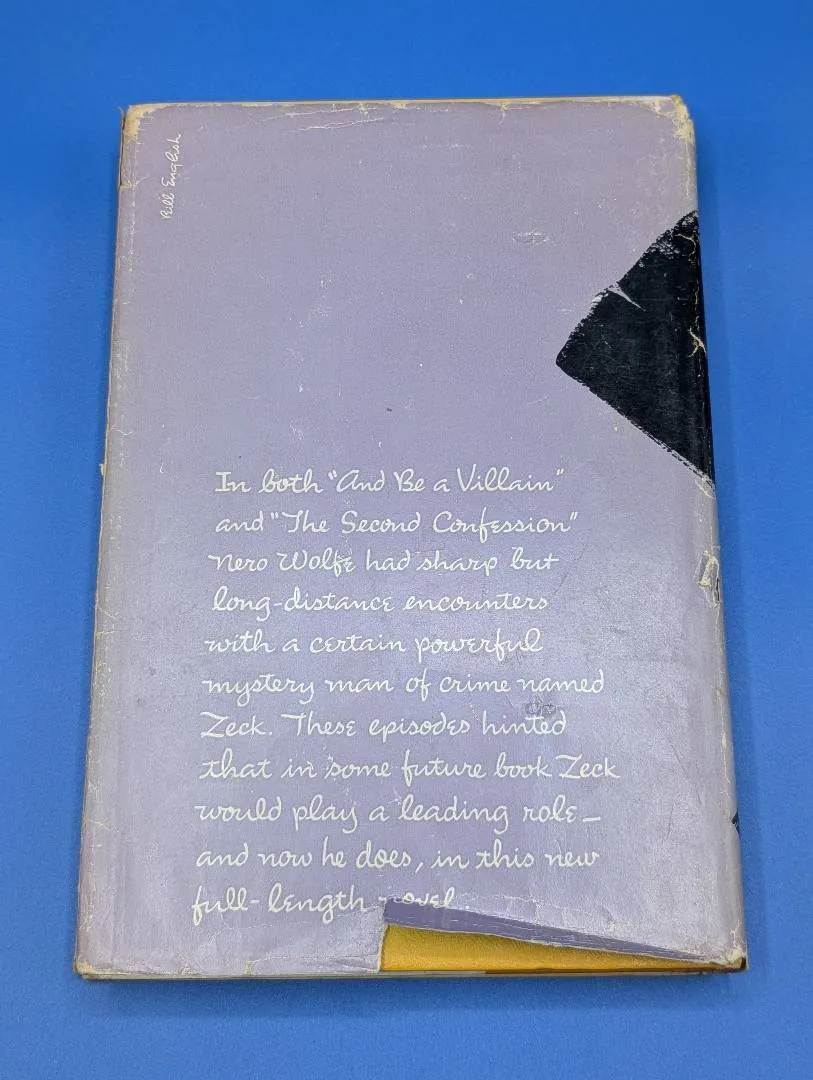 Bill English
In both "And Be a Villain"
and "The Second Confession"
Nero Wolfe had sharp but
long-distance encounters
with a certain powerful
mystery man of crime named
Zeck. These episodes hinted
that in some future book Zeck
would play a leading role—
and now he does, in this new
full-length novel